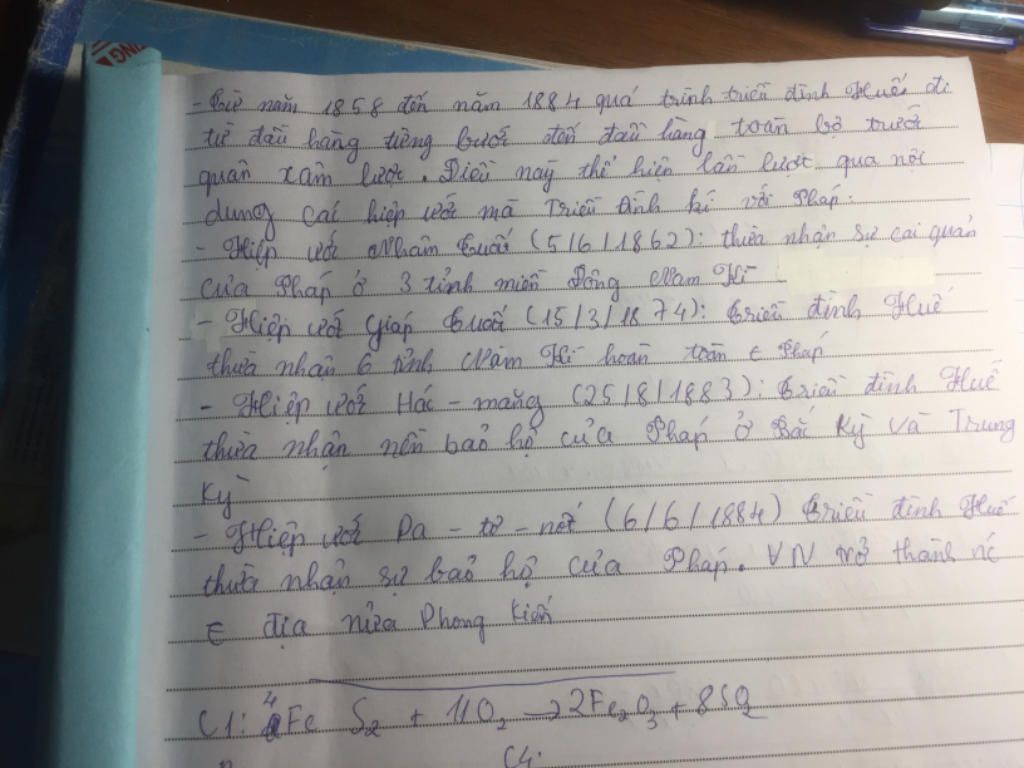 - Từ năm 1858 đến năm 1884 quá trình triều đình Huế đi
từ đầu hàng từng bước đến đầu hàng toàn bộ trước
quân xâm lược. Điều này thể hiện lần lượt qua nội
dung các hiệp ước mà Triều đình kí với Pháp:
- Hiệp ước Nhâm Tuất (5/6/1862): thừa nhận sự cai quản
của Pháp ở 3 tỉnh miền Đông Nam Kì
- Hiệp ước Giáp Tuất (15/3/1874): Triều đình Huế
thừa nhận 6 tỉnh Nam Kì hoàn toàn ∈ Pháp
- Hiệp ước Hác-măng (25/8/1883): Triều đình Huế
thừa nhận nền bảo hộ của Pháp ở Bắc Kỳ và Trung
Kỳ
- Hiệp ước Pa-tơ-nốt (6/6/1884) Triều đình Huế
thừa nhận sự bảo hộ của Pháp. VN trở thành nc
∈ địa nửa Phong Kiến
C1: 4Fe S2 + 11O2 → 2Fe2O3 + 8SO2
C4: